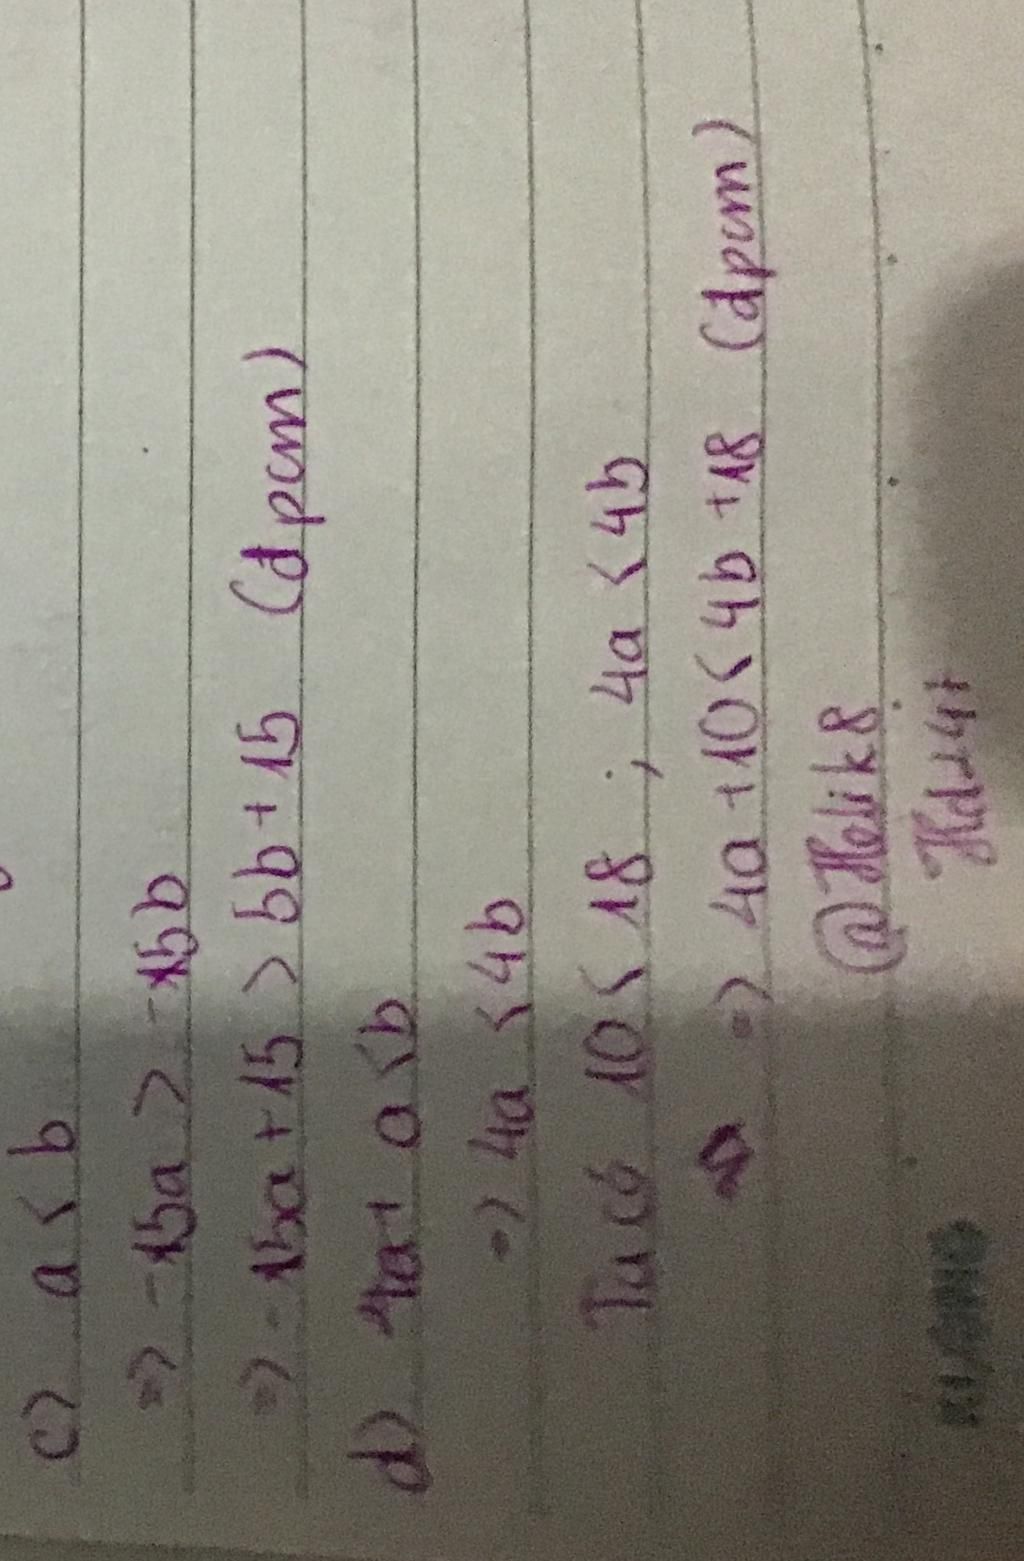 c) a < b
=> -15a > -15b
=> -15a + 15 > 5b + 15 (dpcm)
d) a < b
=> 4a < 4b
Ta có 10 < 18 ; 4a < 4b
=> 4a + 10 < 4b + 18 (dpcm)
@Helik8